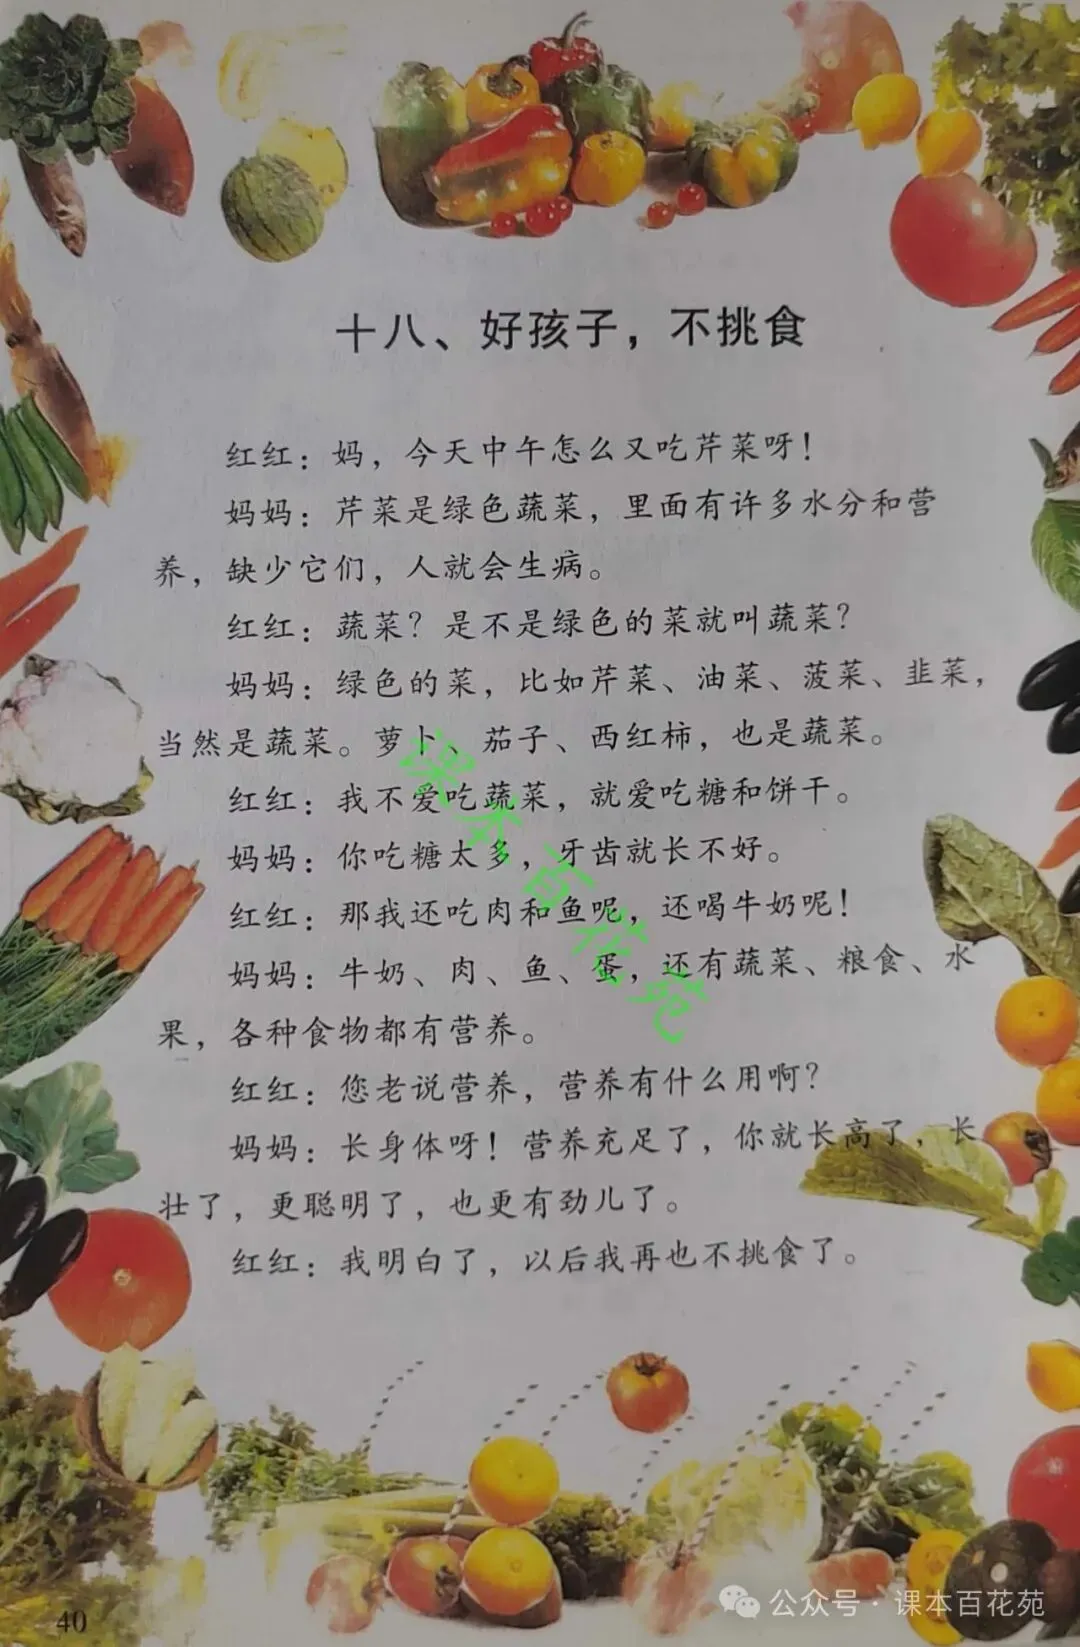 十八、好孩子，不挑食
红红：妈，今天中午怎么又吃芹菜呀！
妈妈：芹菜是绿色蔬菜，里面有许多水分和营
养，缺少它们，人就会生病。
红红：蔬菜？是不是绿色的菜就叫蔬菜？
妈妈：绿色的菜，比如芹菜、油菜、菠菜、韭菜，
当然是蔬菜。萝卜、茄子、西红柿，也是蔬菜。
红红：我不爱吃蔬菜，就爱吃糖和饼干。
妈妈：你吃糖太多，牙齿就长不好。
红红：那我还吃肉和鱼呢，还喝牛奶呢！
妈妈：牛奶、肉、鱼、蛋，还有蔬菜、粮食、水
果，各种食物都有营养。
红红：您老说营养，营养有什么用啊？
妈妈：长身体呀！营养充足了，你就长高了，长
壮了，更聪明了，也更有劲儿了。
红红：我明白了，以后我再也不挑食了。
课本百花苑
40
公众号·课本百花苑